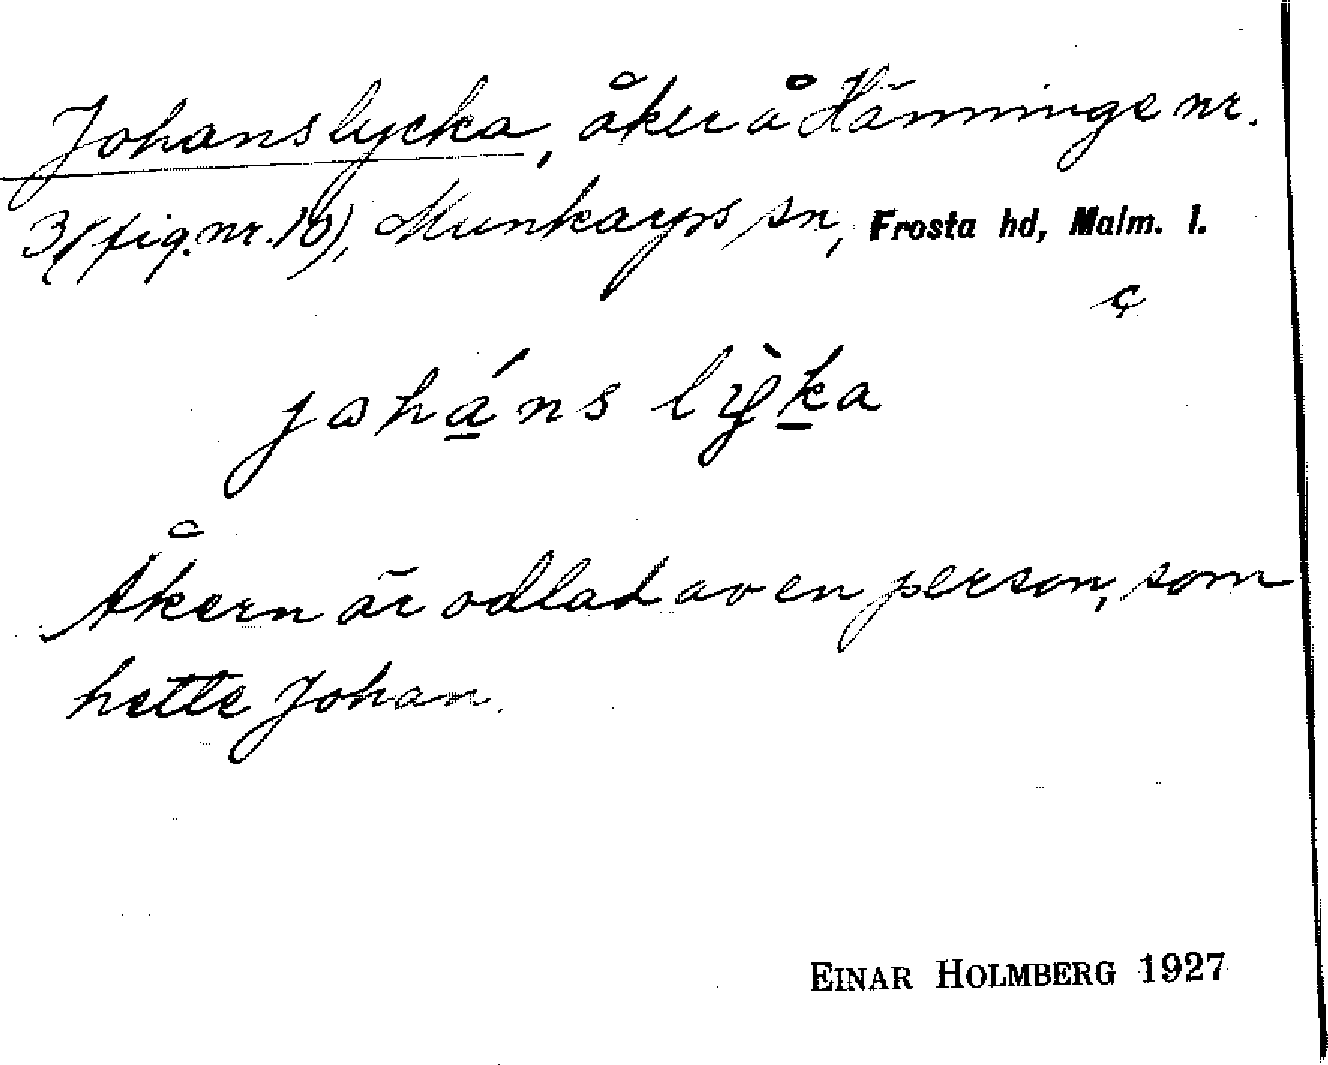 Johanslycka, åker å Hänninge nr.
3 (fig. nr. 10), Munkarps sn, Frosta hd, Malm. l.
ç
joháns lỳka
Åkern är odlad av en person, som
hette Johan.
EINAR HOLMBERG 1927